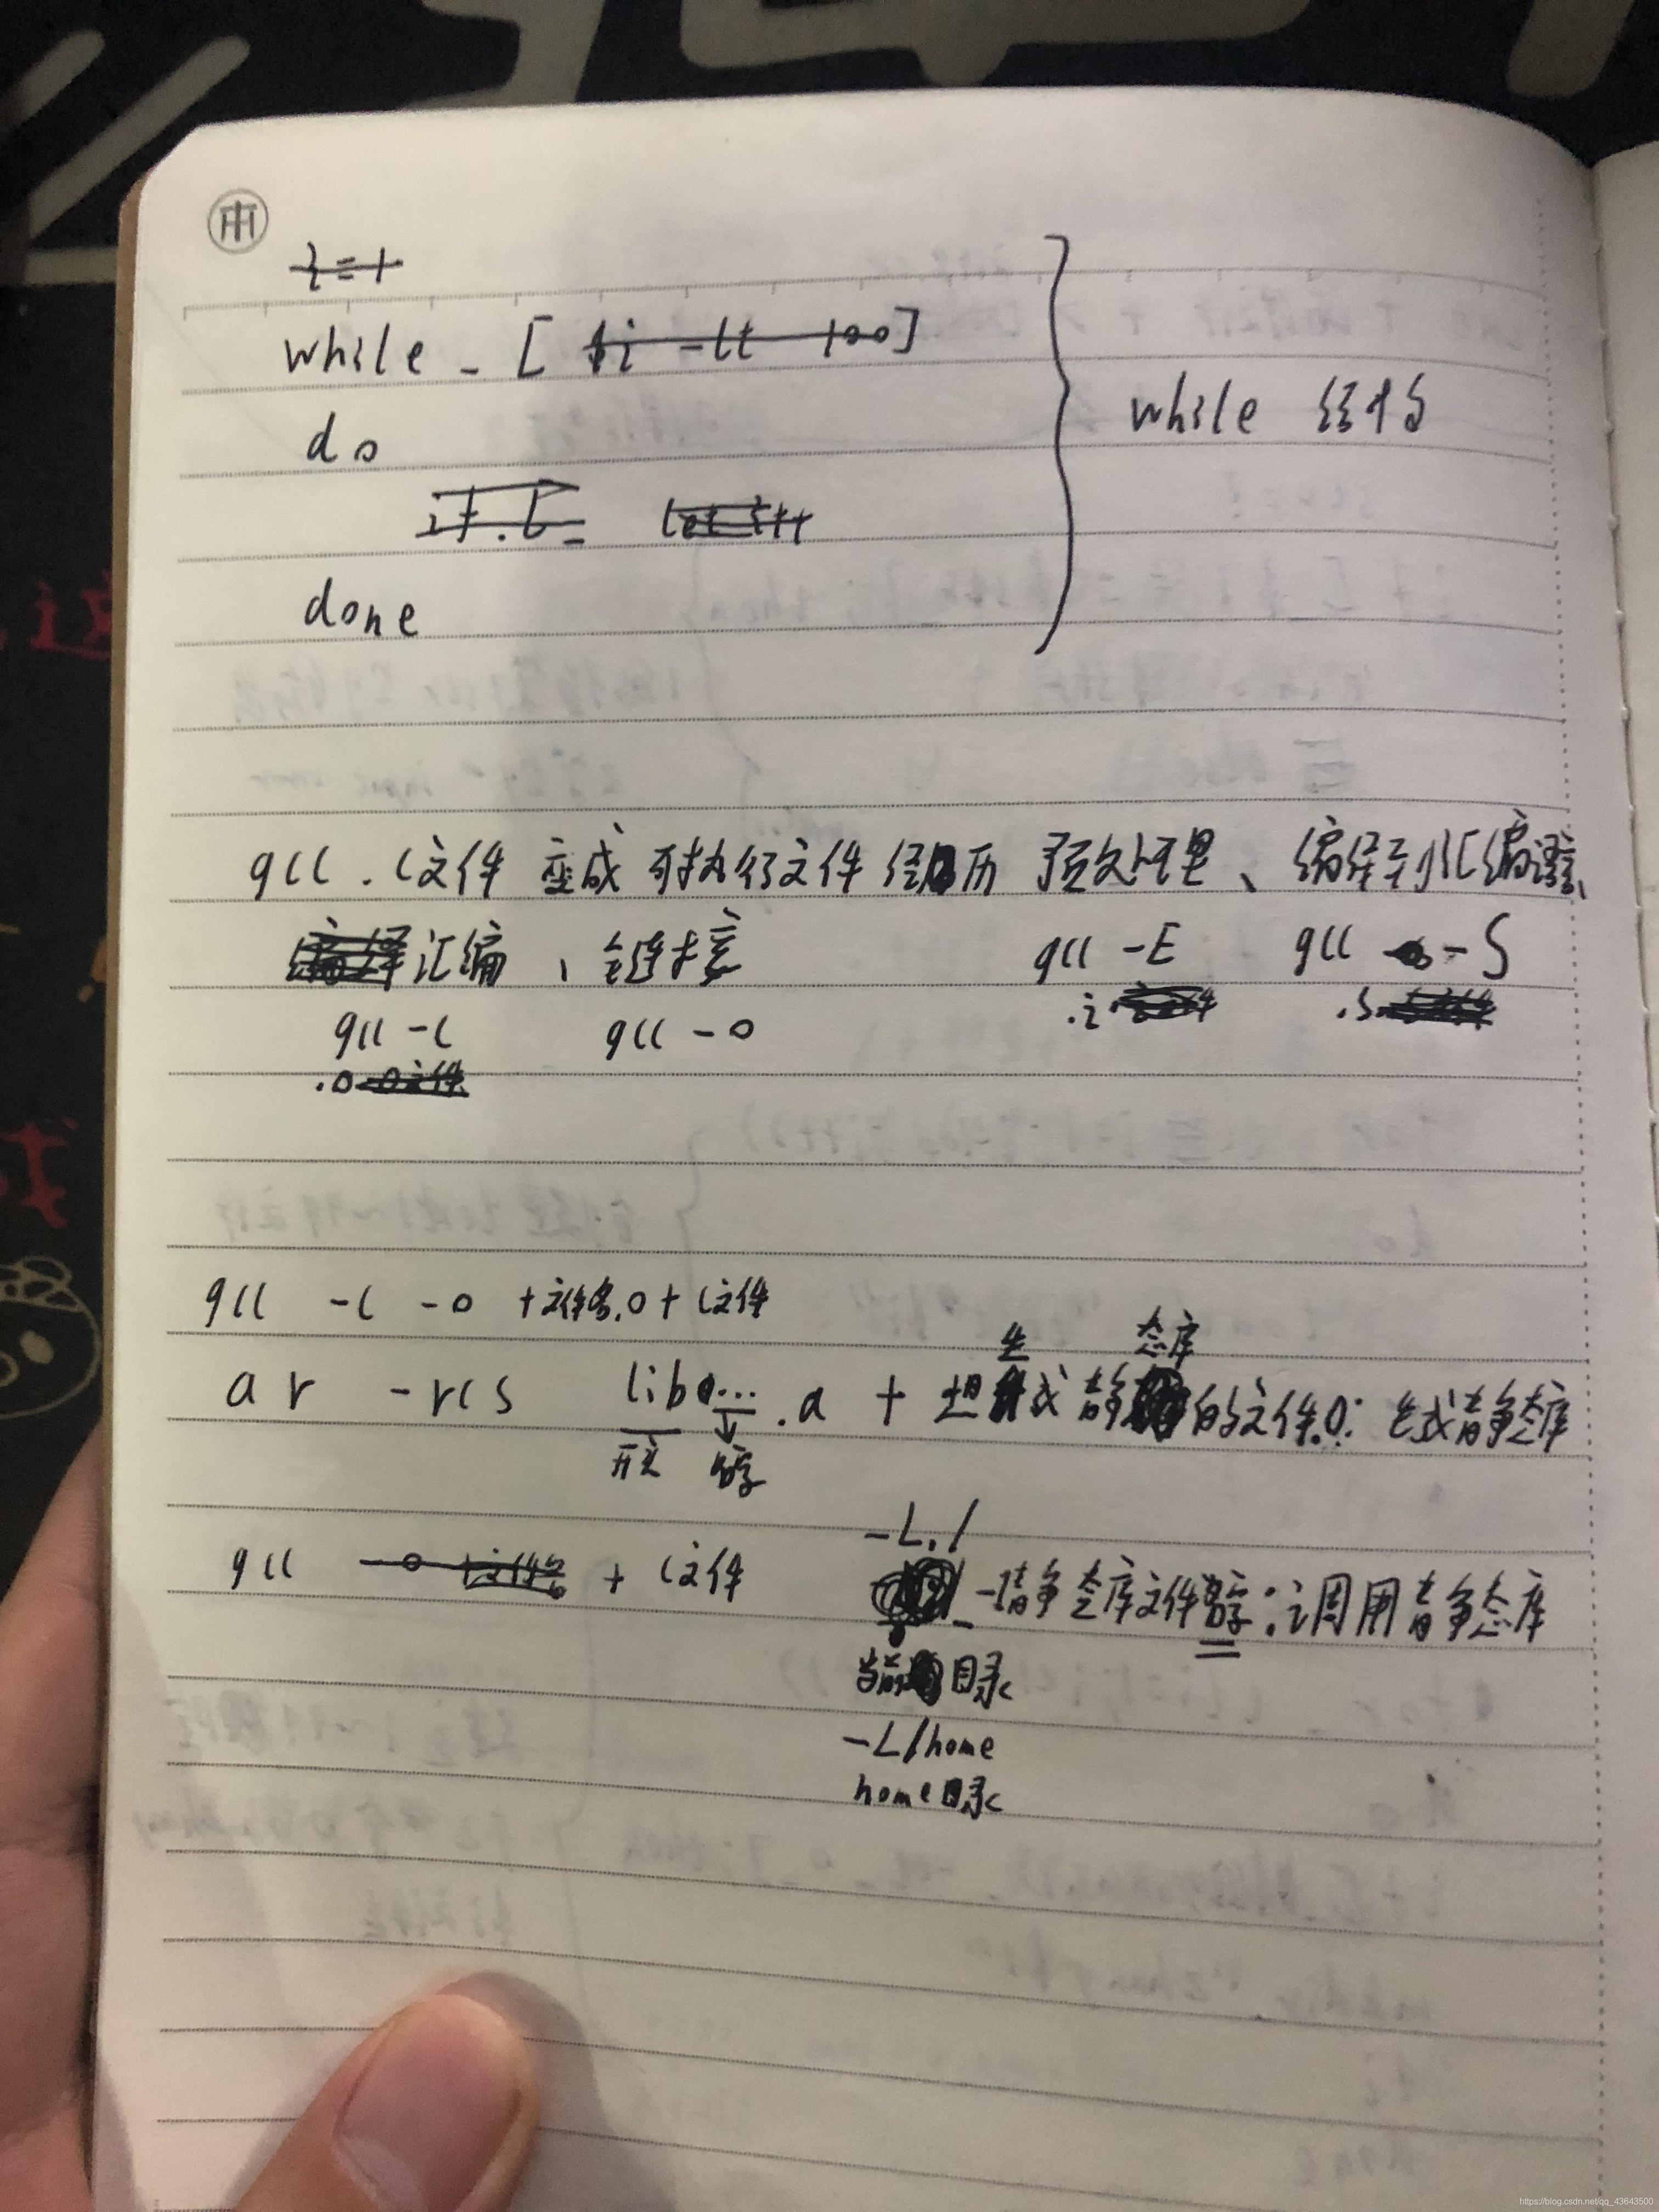 i=1
while - [ $i -lt 100]
do
let i++
done
while 结构
gcc .c文件 变成 可执行文件 经历 预处理、编译到汇编、
汇编、链接
gcc -E gcc -S
.i .s
gcc -c gcc -o
.o
gcc -c -o +文件名.o+c文件
生 态库
ar -rcs lib ... .a + 想 成静 的文件.o: 生成静态库
形式 名字
-L./
gcc + c文件 -l静态库文件名字:调用静态库
当前目录
-L/home
home目录
https://blog.csdn.net/qq_43643500